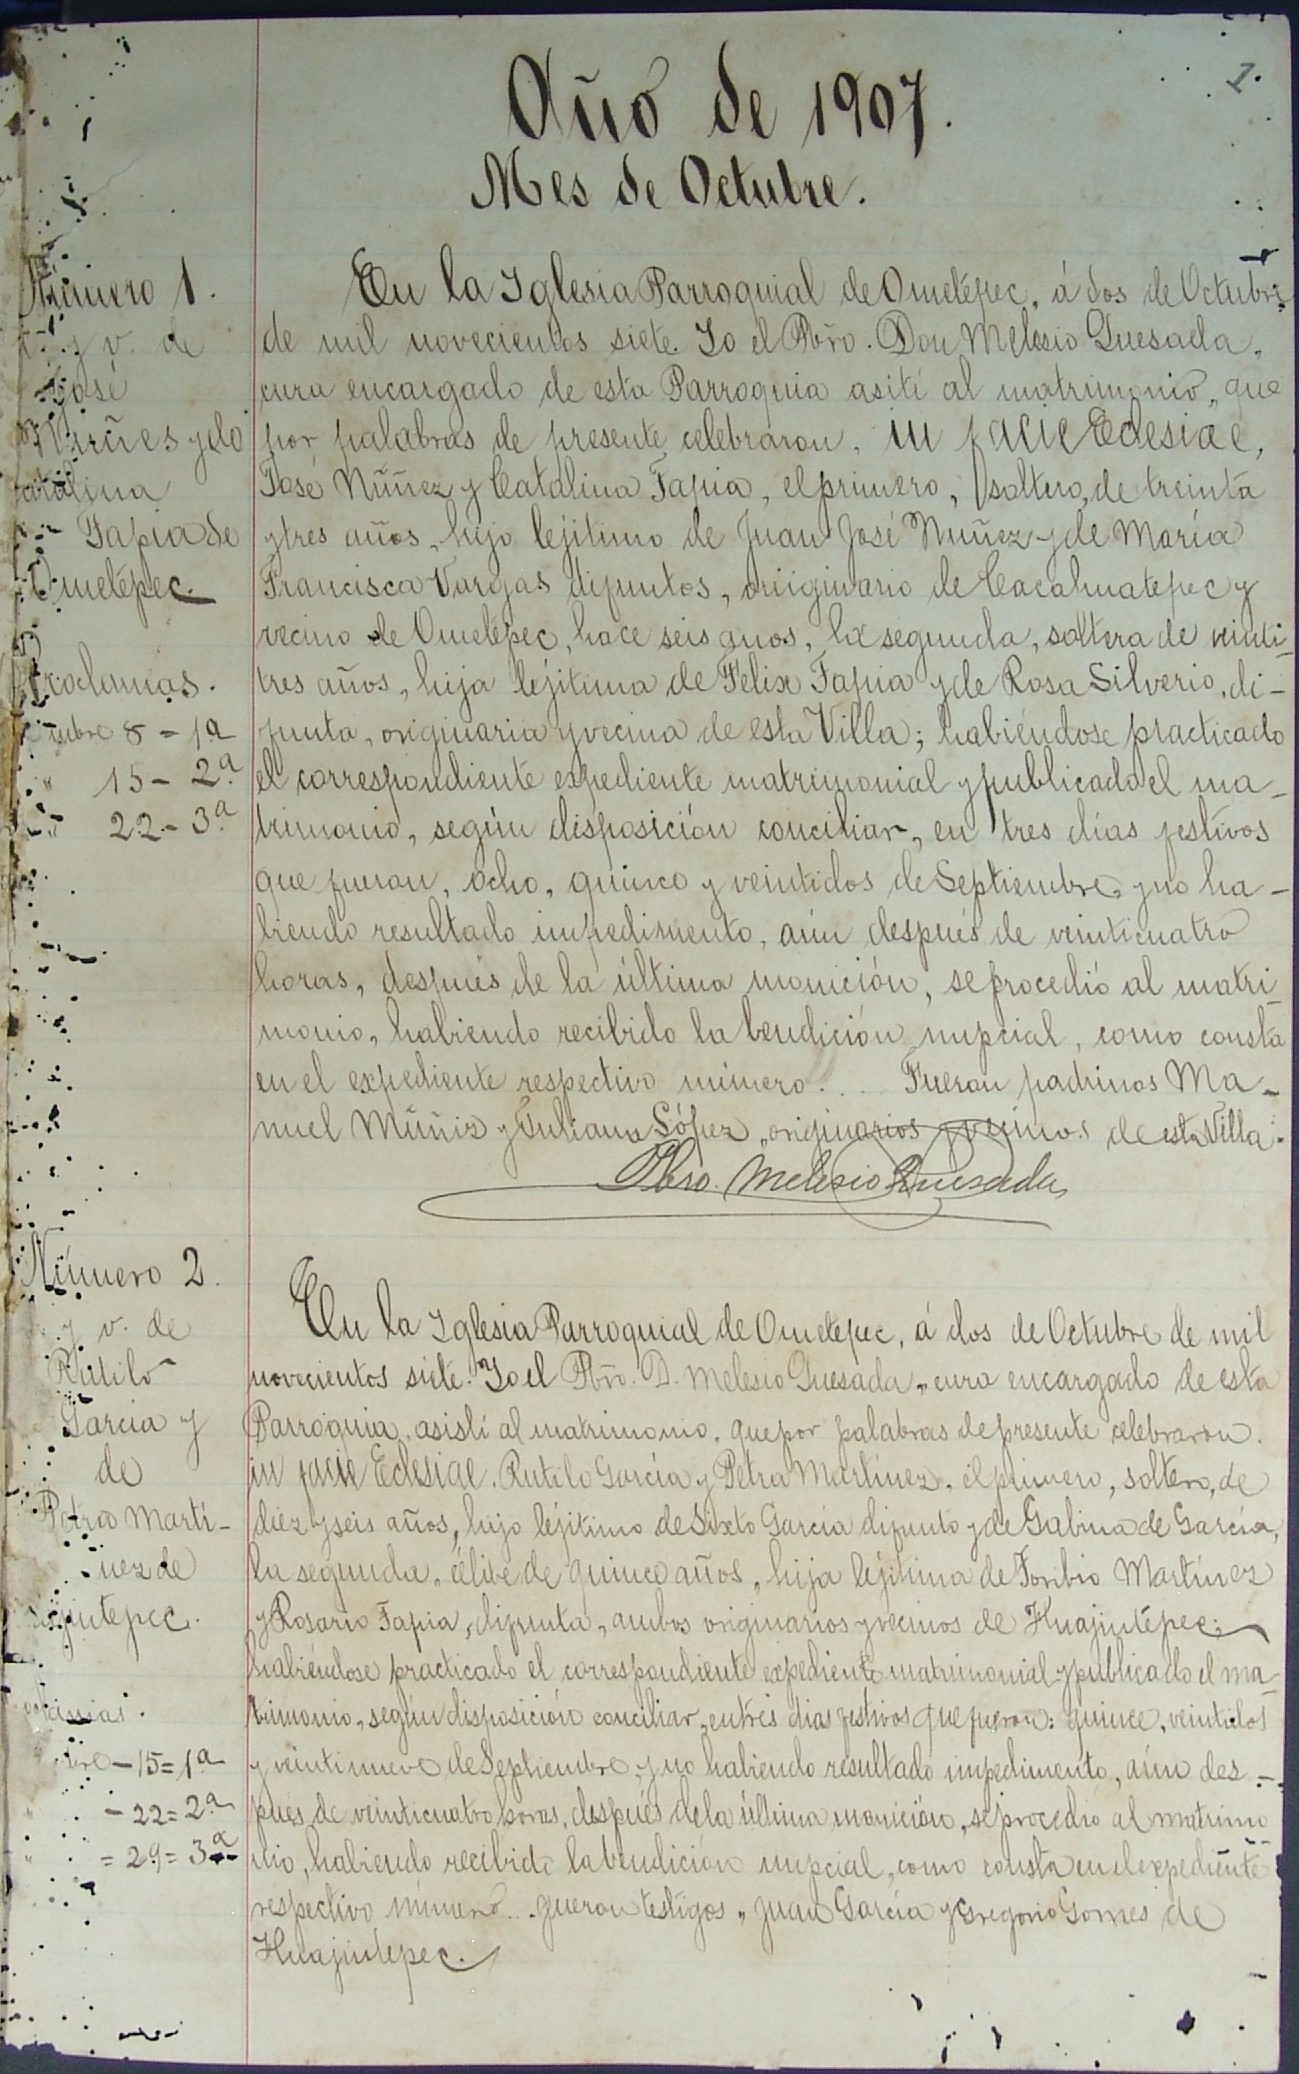 1.
Año de 1907.
Mes de Octubre.
Número 1.
y v. de
José
Nuñes y de
Catalina
Tapia de
Ometepec.
Proclamas.
8 = 1a
" 15 - 2a
" 22 - 3a
En la Iglesia Parroquial de Ometepec, á dos de Octubre
de mil novecientos siete. Yo el Pbro. Don Melesio Quesada,
cura encargado de esta Parroquia asití al matrimonio, que
por palabras de presente celebraron, in facie Eclesiae,
José Nuñez y Catalina Tapia, el primero, soltero, de treinta
y tres años, hijo lejitimo de Juan José Nuñez y de María
Francisca Vargas difuntos, oriiginario de Cacahuatepec y
vecino de Ometepec, hace seis anos, la segunda, soltera de veinti-
tres años, hija lejitima de Felix Tapia y de Rosa Silverio, di-
funta, originaria y vecina de esta Villa; habiéndose practicado
el correspondiente expediente matrimonial y publicado el ma-
trimonio, según disposición conciliar, en tres días festivos
que fueron, ocho, quince y veintidos de Septiembre, y no ha-
biendo resultado impedimento, aún después de veinticuatro
horas, después de la última monición, se procedió al matri-
monio, habiendo recibido la bendición nupcial, como consta
en el expediente respectivo número.... Fueron padrinos Ma-
nuel Muñiz y Juliana López, originarios y vecinos de esta Villa.
Pbro. Melesio Quesada
Número 2.
y v. de
Rutilo
Garcia y
de
Petra Marti-
nez de
15 = 1a
" - 22 = 2a
" = 29 = 3a
En la Iglesia Parroquial de Ometepec, á dos de Octubre de mil
novecientos siete. Yo el Pbro. D. Melesio Quesada, cura encargado de esta
Parroquia, asistí al matrimonio, que por palabras de presente celebraron.
in facie Eclesiae. Rutilo García y Petra Martínez, el primero, soltero, de
diez y seis años, hijo lejitimo de Sixto García difunto y de Gabina de García,
la segunda, célibe de quince años, hija lejitima de Toribio Martínez
y Rosario Tapia, difunta, ambos originarios y vecinos de Huajintepec;
habiéndose practicado el correspondiente expediente matrimonial y publicado el ma-
trimonio, según disposición conciliar, en tres dias festivos que fueron: quince, veintidos
y veintinueve de Septiembre, y no habiendo resultado impedimento, aún des-
pués de veinticuatro horas, después de la última monición, se procedió al matrimo
nio, habiendo recibido la bendición nupcial, como consta en el expediente
respectivo número... fueron testigos, Juan García y Gregorio Gomes de
Huajintepec.